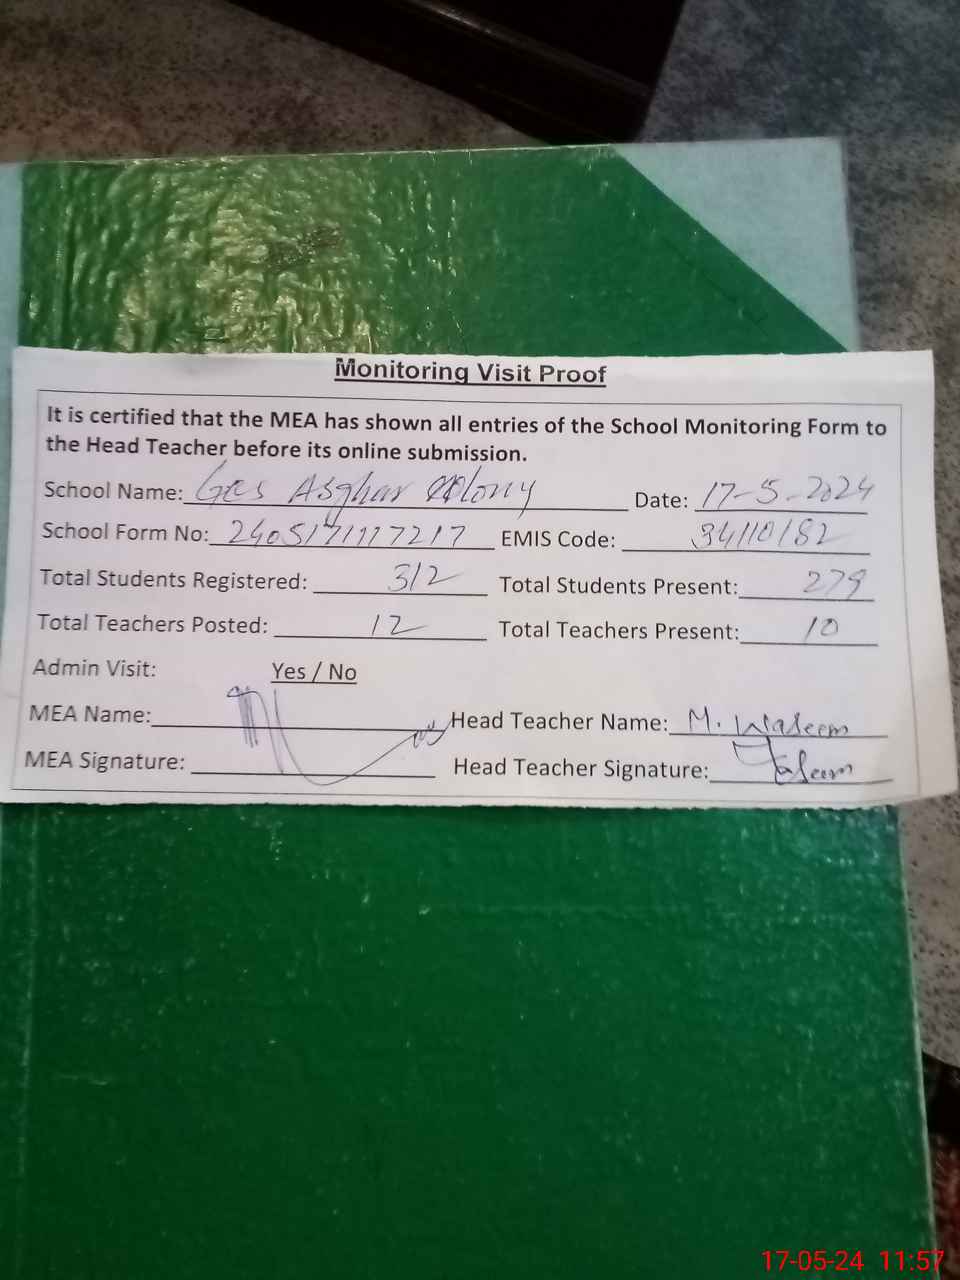 Monitoring Visit Proof
It is certified that the MEA has shown all entries of the School Monitoring Form to
the Head Teacher before its online submission.
School Name: Ges Asghar Colony Date: 17-5-2024
School Form No: 2405171117217 EMIS Code: 34110182
Total Students Registered: 312 Total Students Present: 279
Total Teachers Posted: 12 Total Teachers Present: 10
Admin Visit: Yes / No
MEA Name: Head Teacher Name: M. Waseem
MEA Signature: Head Teacher Signature:
17-05-24 11:57